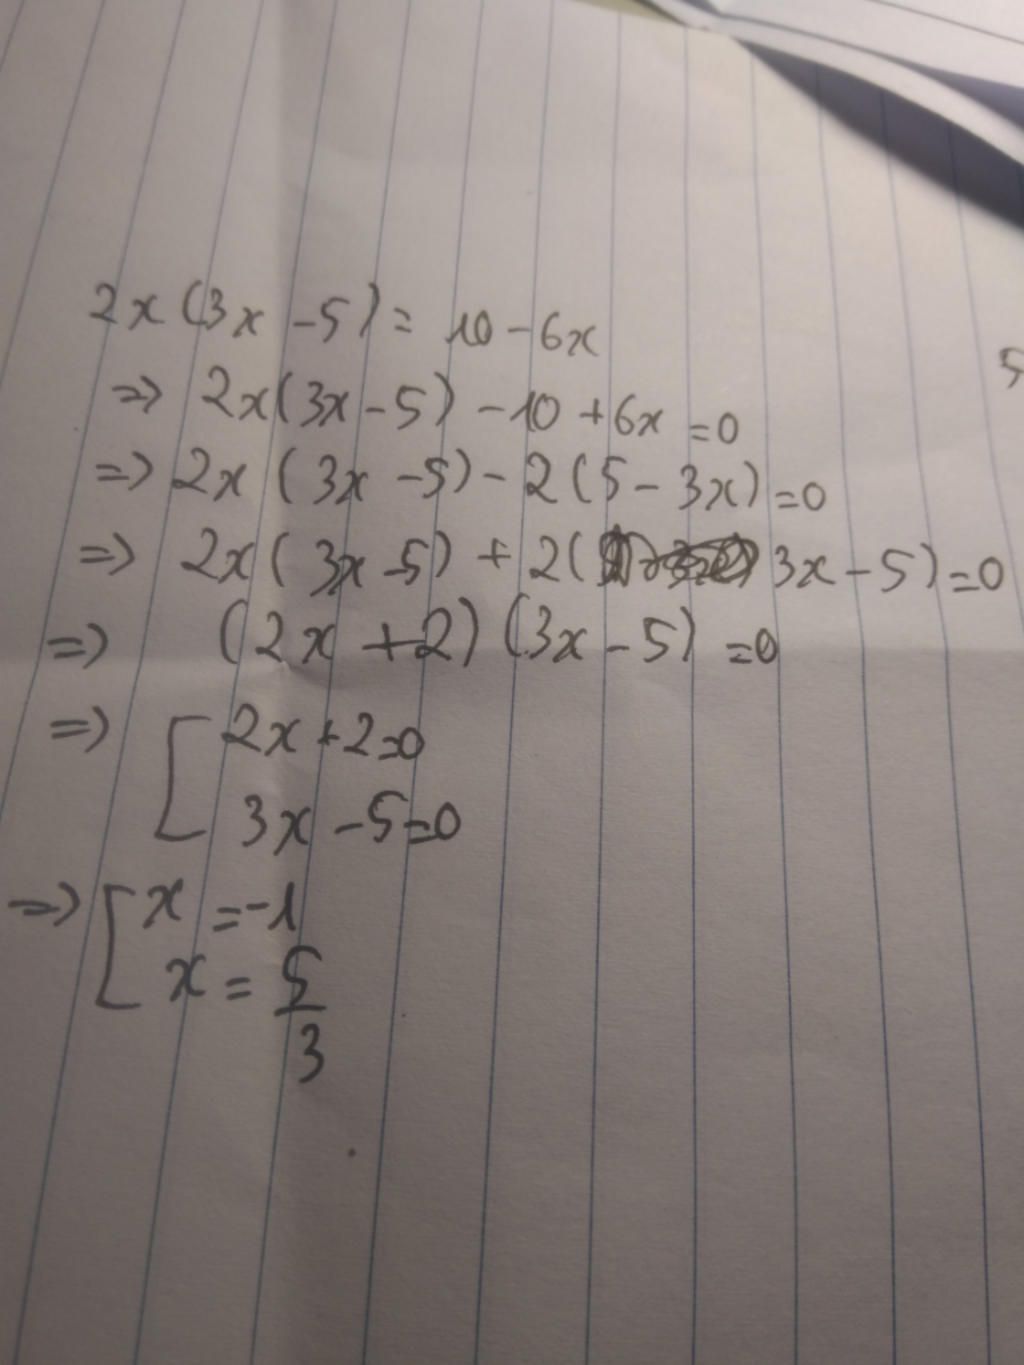 2x(3x-5)= 10-6x
=> 2x(3x-5)-10+6x=0
=> 2x(3x-5)-2(5-3x)=0
=> 2x(3x-5)+2(3x-5)=0
=> (2x+2)(3x-5)=0
=> [2x+2=0
3x-5=0
=> [x=-1
x=5/3
5